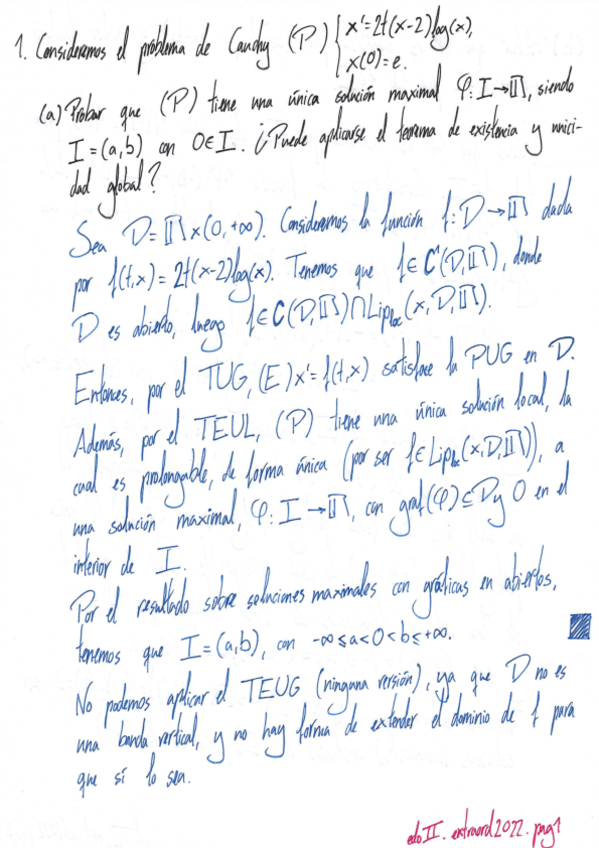 1. Consideramos el problema de Cauchy (P) { x' = 2t(x-2)log(x),
x(0) = e.
(a) Probar que (P) tiene una única solución maximal φ: I → ℝ, siendo
I = (a,b) con 0 ∈ I. ¿Puede aplicarse el teorema de existencia y unici-
dad global?
Sea D = ℝ × (0,+∞). Consideremos la función f: D → ℝ dada
por f(t,x) = 2t(x-2)log(x). Tenemos que f ∈ C¹(D,ℝ), donde
D es abierto, luego f ∈ C(D,ℝ) ∩ Lip_loc(x,D,ℝ).
Entonces, por el TUG, (E) x' = f(t,x) satisface la PUG en D.
Además, por el TEUL, (P) tiene una única solución local, la
cual es prolongable, de forma única (por ser f ∈ Lip_loc(x,D,ℝ)), a
una solución maximal, φ: I → ℝ, con graf(φ) ⊆ D y 0 en el
interior de I.
Por el resultado sobre soluciones maximales con gráficas en abiertos,
tenemos que I = (a,b), con -∞ ≤ a < 0 < b ≤ +∞.
No podemos aplicar el TEUG (ninguna versión), ya que D no es
una banda vertical, y no hay forma de extender el dominio de f para
que sí lo sea.
edo II. extraord2022. pag1